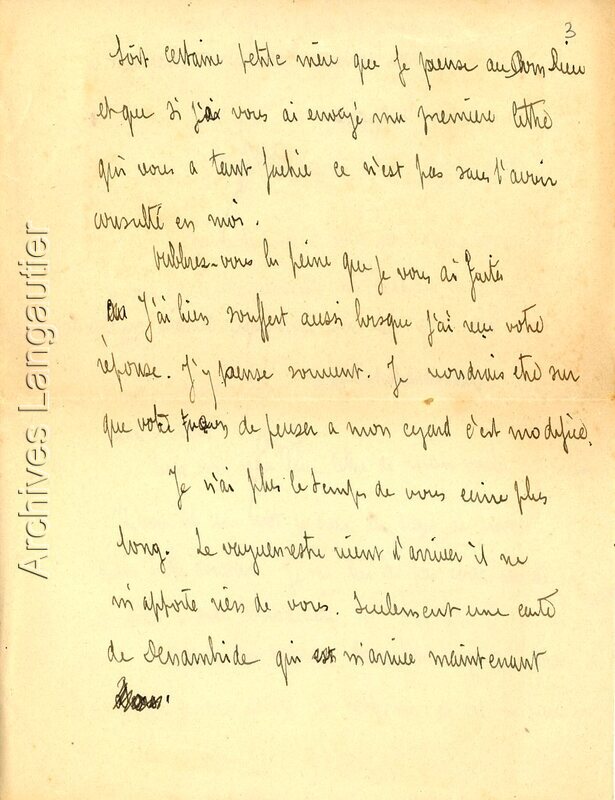 3
Soit certaine petite mère que je pense au Bon Dieu
et que si j'ai vous ai envoyé ma première lettre
qui vous a tant fachée ce n'est pas sans l'avoir
consulté en moi.
Oubliez-vous la peine que je vous ai faites
J'ai bien souffert aussi lorsque j'ai reçu votre
réponse. J'y pense souvent. Je voudrais etre sur
que votre façon de penser a mon egard c'est modifiée.
Je n'ai plus le temps de vous ecrire plus
long. Le vaguemestre vient d'arriver il ne
m'apporte rien de vous. Seulement une carte
de qui m'arrive maintenant
Archives Langautier